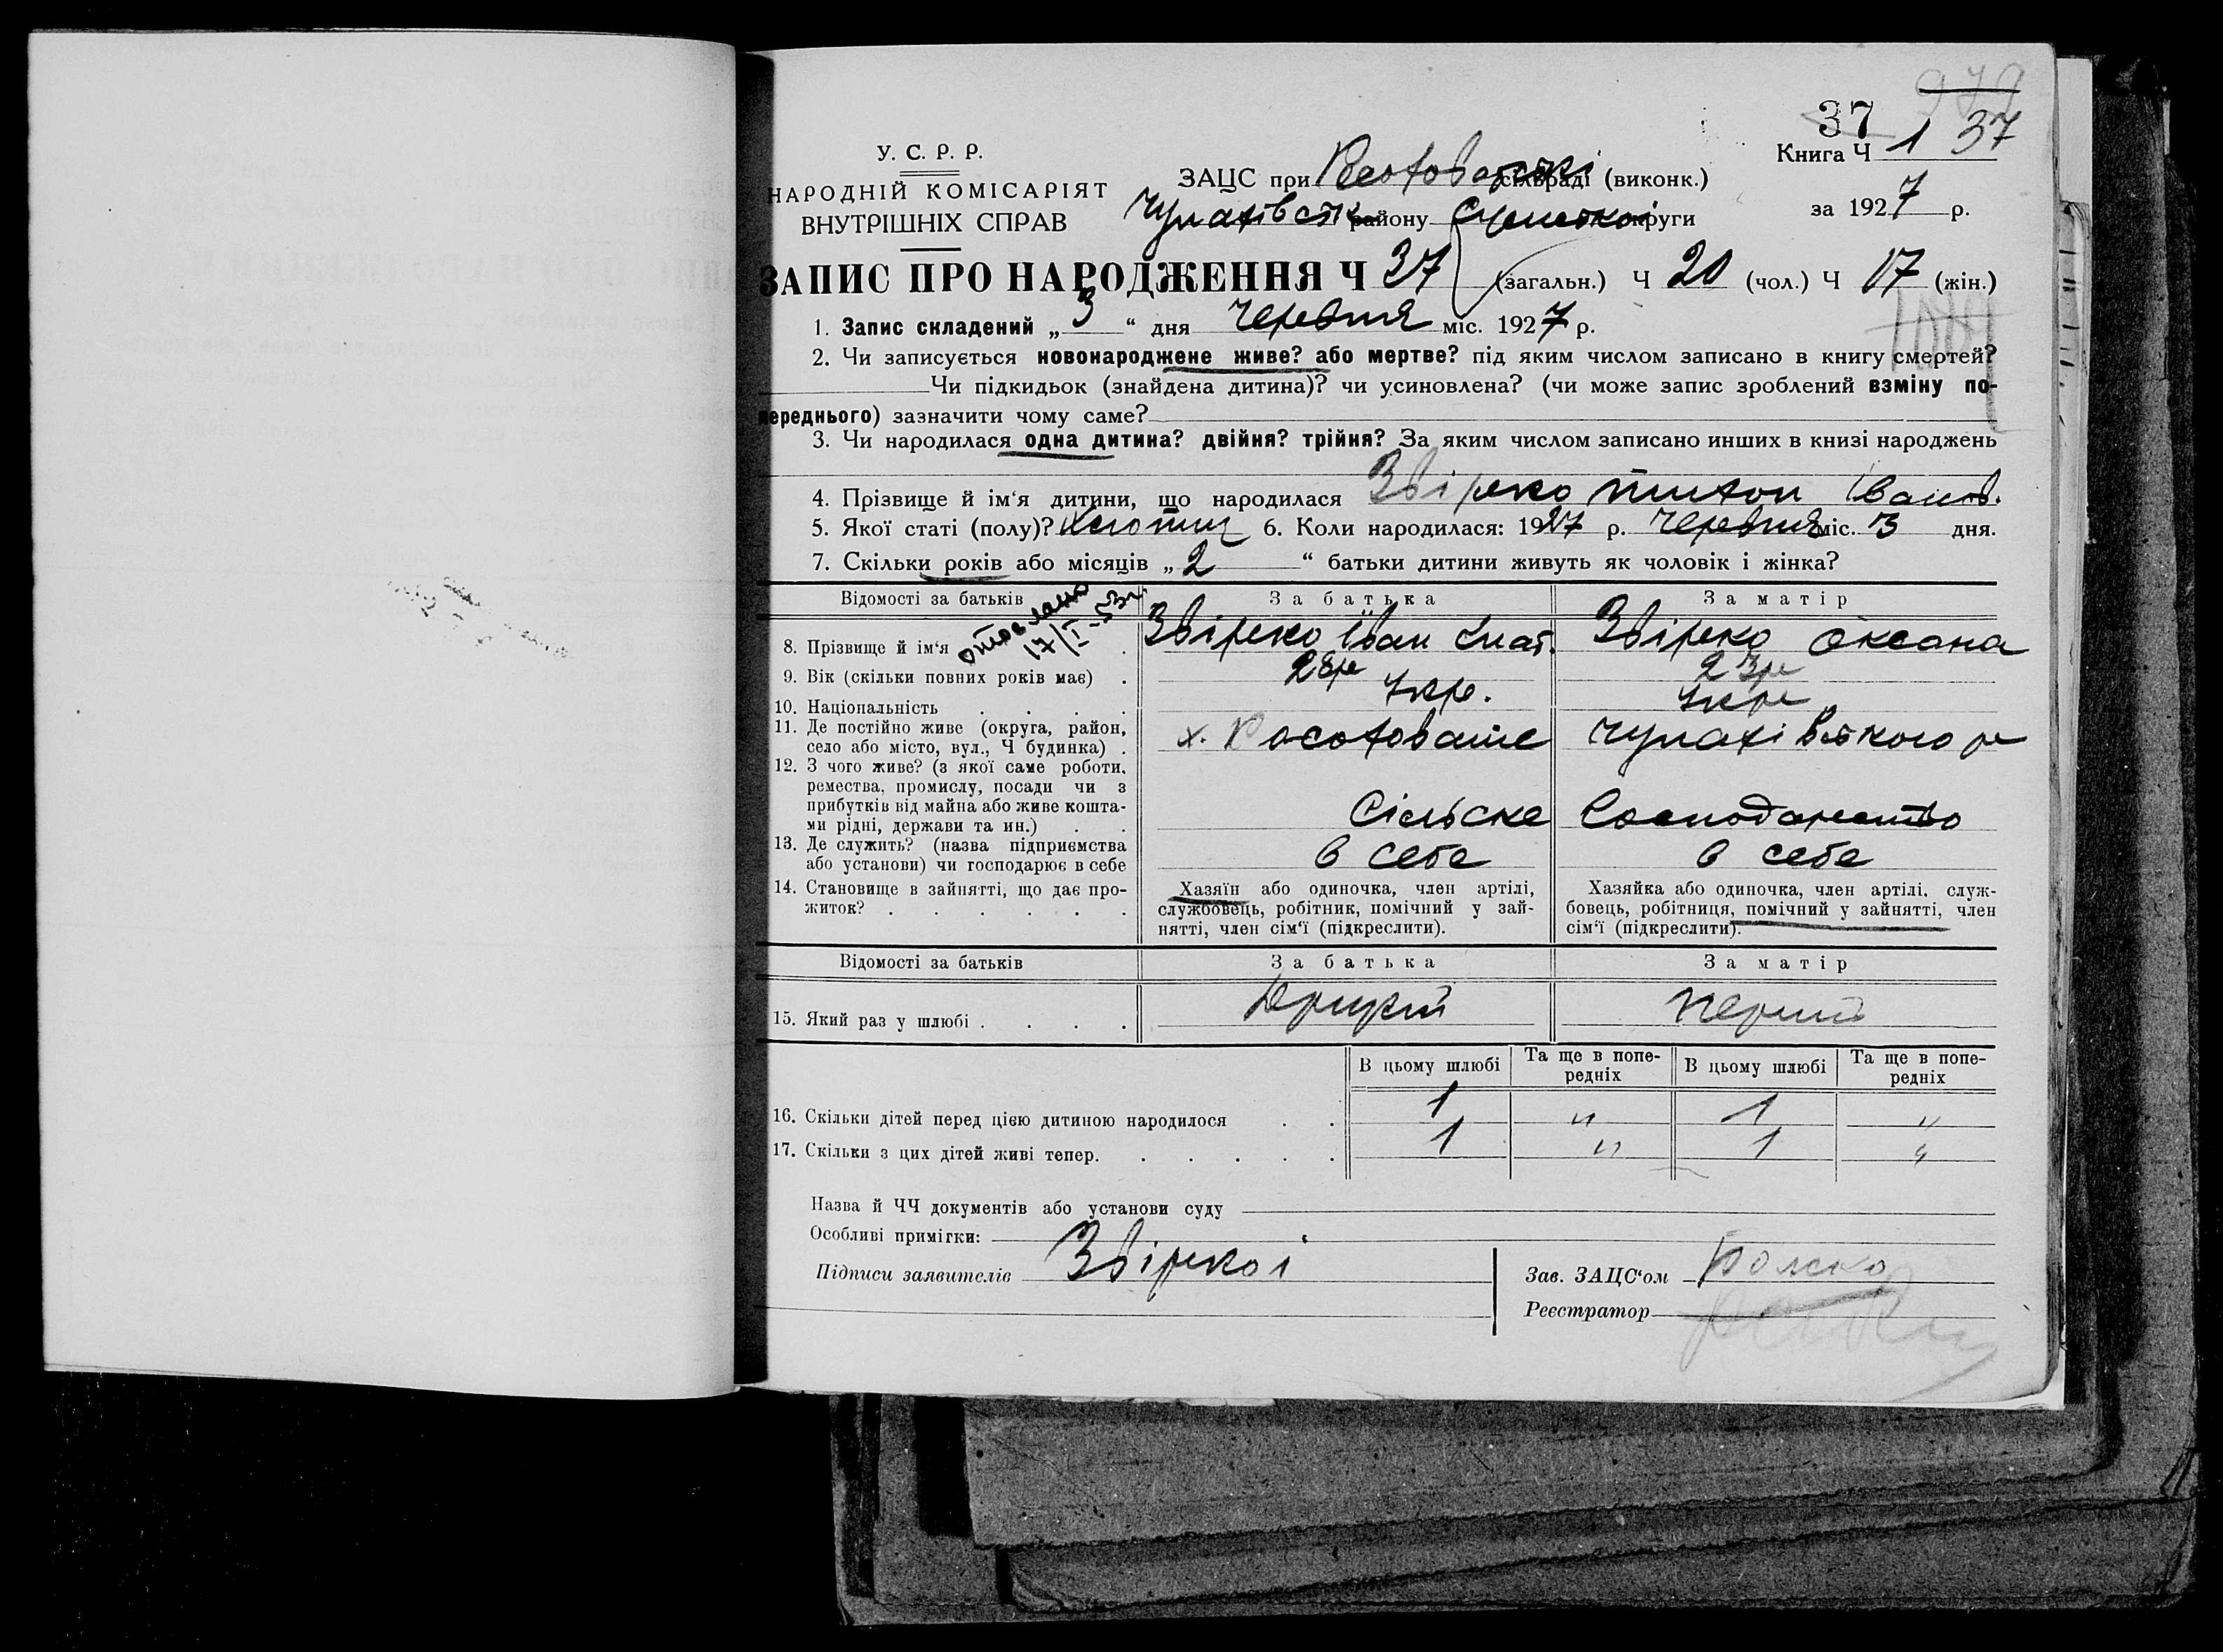 979
37
У. С. Р. Р.
Книга Ч 1 37
ЗАЦС при сільраді (виконк.)
НАРОДНІЙ КОМІСАРІЯТ
ВНУТРІШНІХ СПРАВ
Чупахівськ району Сумської округи
за 1927 р.
ЗАПИС ПРО НАРОДЖЕННЯ Ч 37 (загальн.) Ч 20 (чол.) Ч 17 (жін.)
1. Запис складений „ 3 “ дня Червня міс. 1927 р.
2. Чи записується новонароджене живе? або мертве? під яким числом записано в книгу смертей?
Чи підкидьок (знайдена дитина)? чи усиновлена? (чи може запис зроблений взміну по-
переднього) зазначити чому саме?
3. Чи народилася одна дитина? двійня? трійня? За яким числом записано инших в книзі народжень
4. Прізвище й ім‘я дитини, що народилася Звірко Тихон Іванов.
5. Якої статі (полу)? Хлопчик 6. Коли народилася: 1927 р. Червня міс. 3 дня.
7. Скільки років або місяців „ 2 “ батьки дитини живуть як чоловік і жінка?
Відомості за батьків За батька За матір
17/I-53г.
8. Прізвище й ім‘я Звірко Іван Гнат. Звірко Оксана
9. Вік (скільки повних років має) 28р 23р
10. Національність Укр. Укр
11. Де постійно живе (округа, район,
село або місто, вул., Ч будинка) х. Чупахівського р
12. З чого живе? (з якої саме роботи,
ремества, промислу, посади чи з
прибутків від майна або живе кошта-
ми рідні, держави та ин.) Сільске Господарство
13. Де служить? (назва підприємства
або установи) чи господарює в себе в себе в себе
14. Становище в зайнятті, що дає про-
житок?
Хазяїн або одиночка, член артілі,
службовець, робітник, помічний у зай-
нятті, член сім‘ї (підкреслити).
Хазяйка або одиночка, член артілі, служ-
бовець, робітниця, помічний у зайнятті, член
сім‘ї (підкреслити).
Відомості за батьків За батька За матір
15. Який раз у шлюбі Другий Перший
В цьому шлюбі Та ще в попе-
редніх В цьому шлюбі Та ще в попе-
редніх
16. Скільки дітей перед цією дитиною народилося 1 " 1 "
17. Скільки з цих дітей живі тепер. 1 " 1 "
Назва й ЧЧ документів або установи суду
Особливі примітки:
Підписи заявителів Звірко і
Зав. ЗАЦС‘ом
Реєстратор